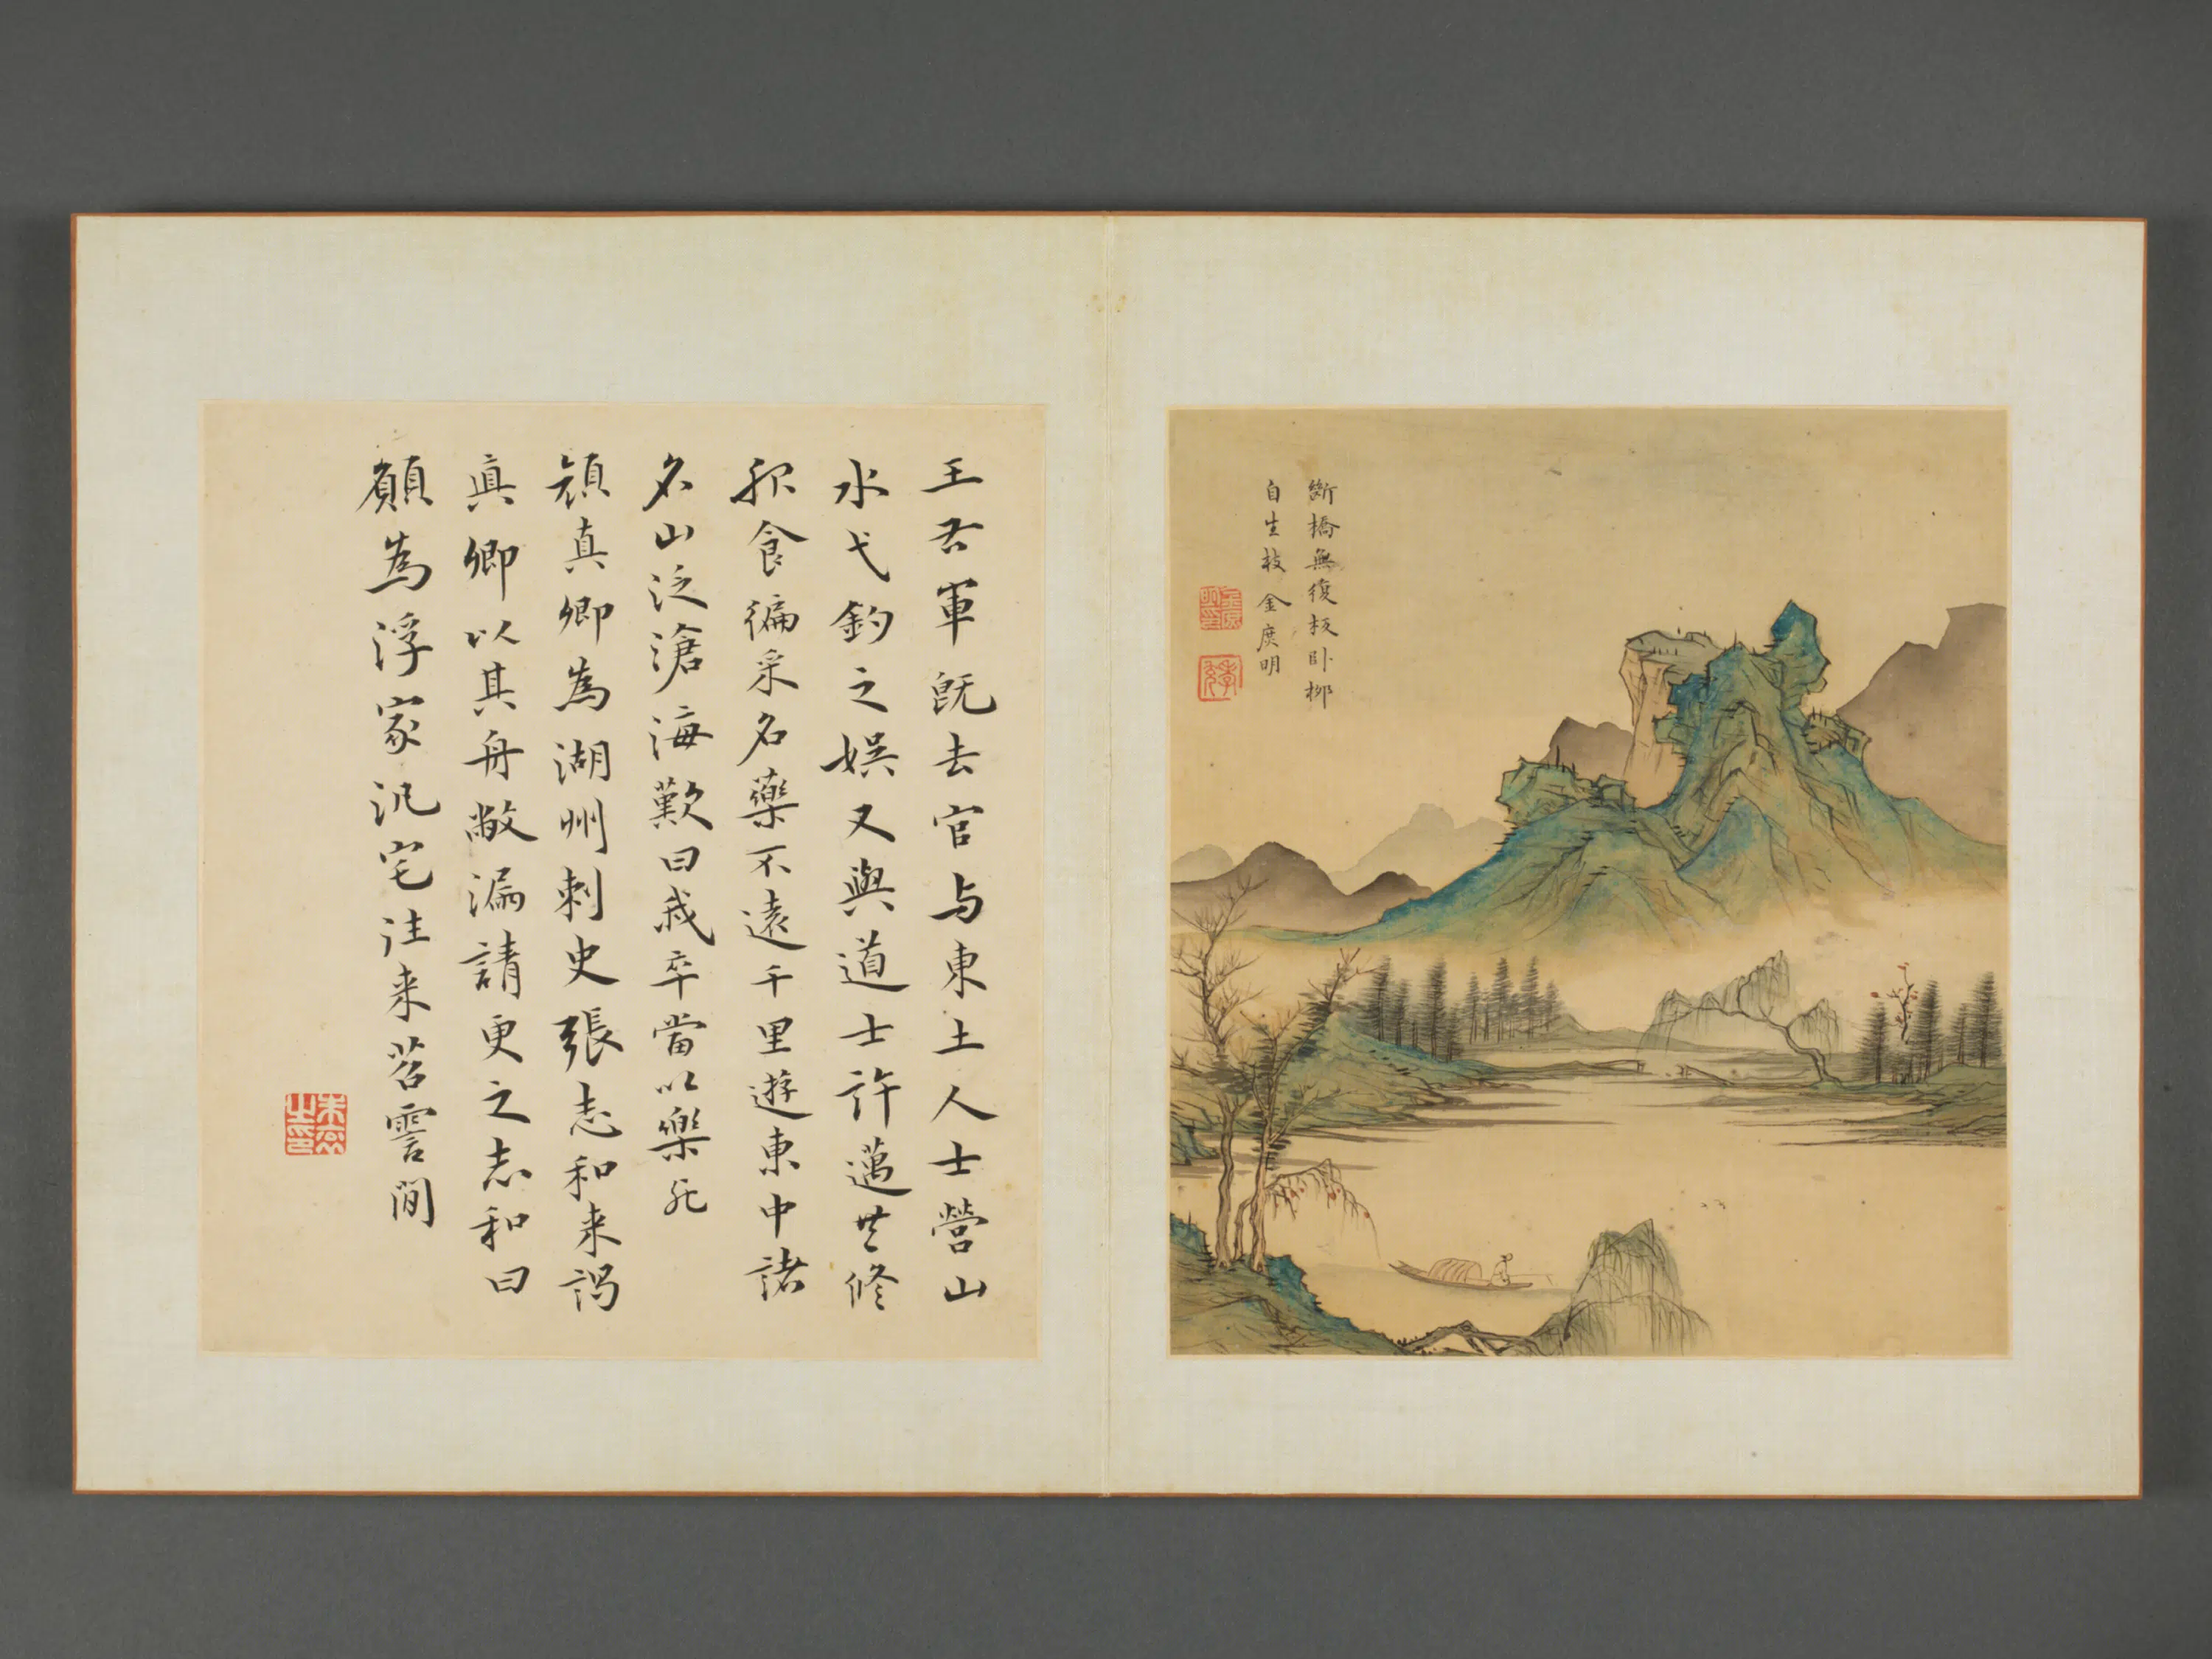 斷橋無復板臥柳
自生枝 金庚明
王右軍既去官与東土人士營山
水弋釣之娛又與道士許邁共修
服食徧采名藥不遠千里遊東中諸
名山泛滄海歎曰我卒當以樂死
顏真卿為湖州刺史張志和来謁
真卿以其舟敝漏請更之志和曰
願為浮家汎宅往来苕霅間